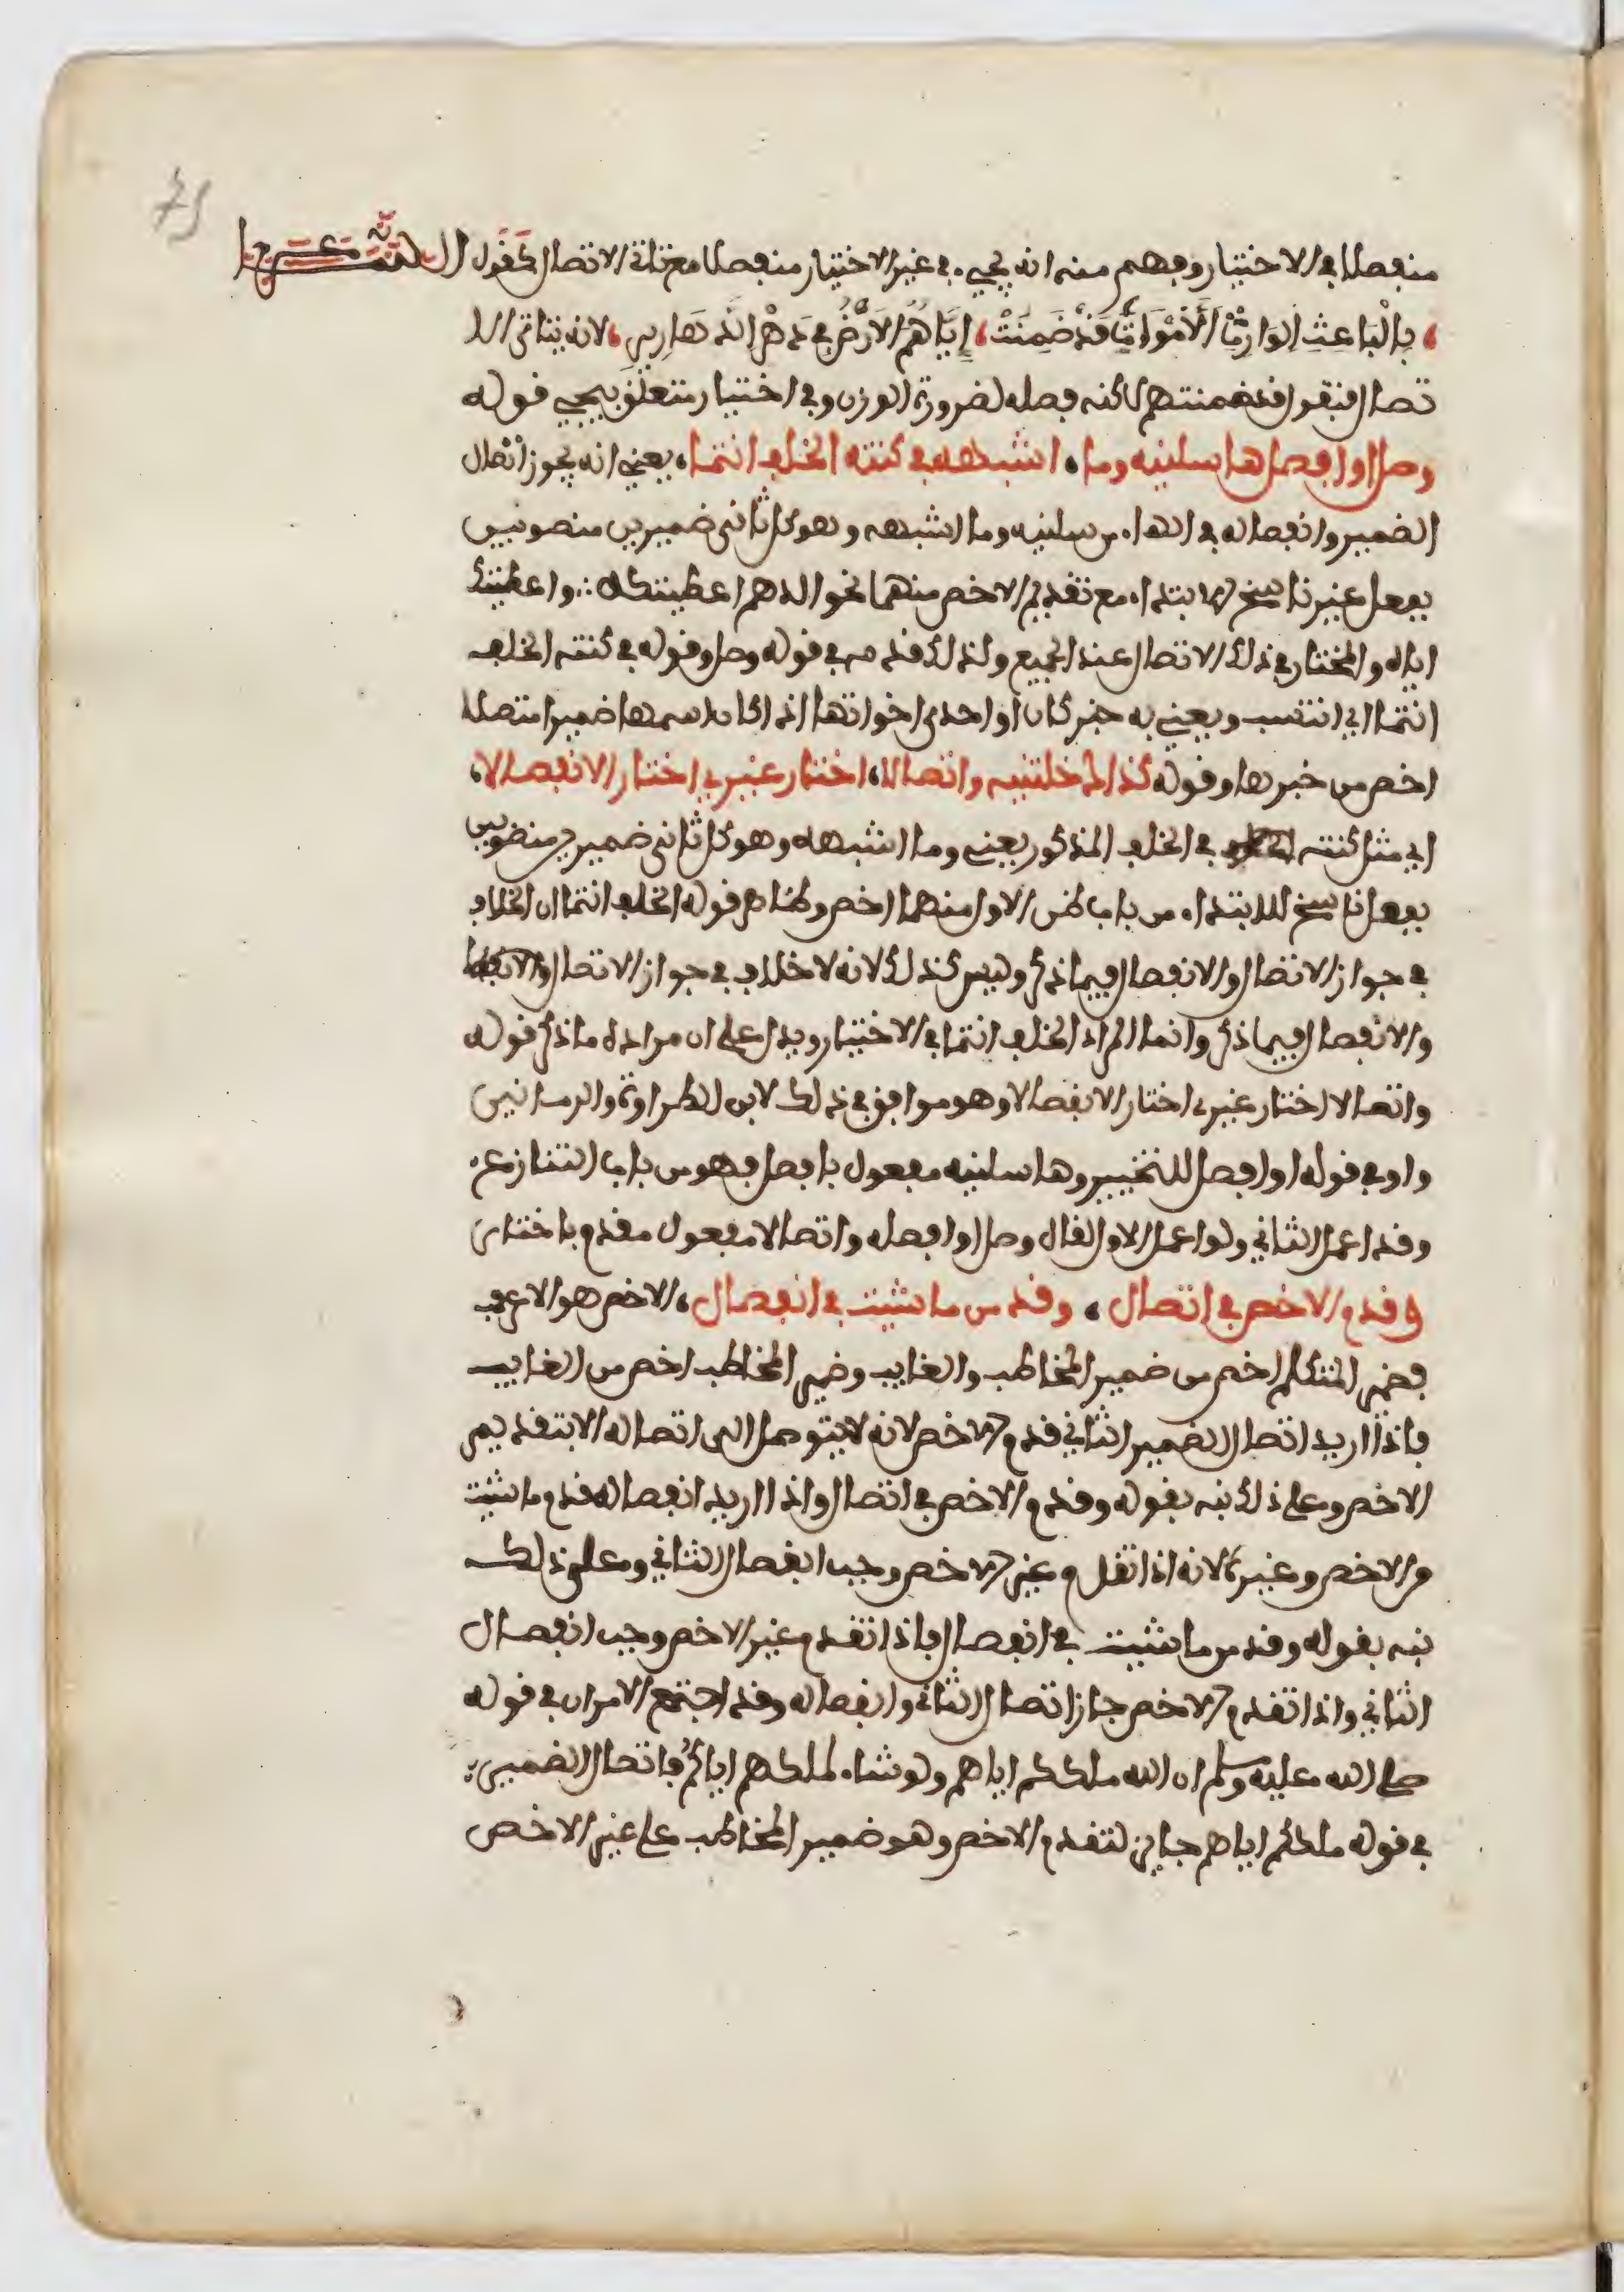 منفصلا في الاختيار وفهم منه انه يجيء في غير الاختيار منفصلا مع تاتي الاتصال كقول الشـــاعر
بِالْبَاعِثِ الوَارِثِ الأَمْوَاتَ قَدْ ضَمِنَتْ، إِيَّاهُمُ الأَرْضُ فِي دَهْرِ الدَّهَارِيرِ، لانه يتاتى الا
تصال فيقول قد ضمنتهم لاكنه فصله لضرورة الوزن وفي اختيار متعلق بيجيء قوله
وصل او افصل هاء سلنيه وما، اشبهه في كنته الخلف انتما، يعني انه يجوز اتصال
الضمير وانفصاله في الهاء من سلنيه وما اشبهه وهو كل ثاني ضميرين منصوبين
بفعل غير ناسخ للابتداء مع تقديم الاخص منهما نحو الدرهم اعطيتكه واعطيتك
اياه والمختار في ذلك الاتصال عند الجميع ولذلك قدمه في قوله وصل وقوله في كنته الخلف
انتما اي انتسب ويعني به خبر كان او احدى اخواتها اذا كان اسمها ضميرا متصلا
اخص من خبرها وقوله كذاك خلتنيه واتصالا، اختار غيري اختار الانفصالا،
اي مثل كنته في الخلف المذكور يعني وما اشبهه وهو كل ثاني ضميرين منصوبين
بفعل ناسخ للابتداء من باب ظن الاول منهما اخص وظاهر قوله الخلف انتما ان الخلاف
في جواز الاتصال والانفصال فيما ذكر وليس كذلك لانه لا خلاف في جواز الاتصال والانفصال
والانفصال فيما ذكر وانما المراد الخلف انتما في الاختيار ويدل على ان مراده ما ذكر قوله
واتصالا اختار غيري اختار الانفصالا وهو موافق في ذلك لابن الطراوة والرماني
واو في قوله او افصل للتخيير وهاء سلنيه مفعول بافصل فهو من باب التنازع
وقد اعمل الثاني ولو اعمل الاول لقال وصل او افصله واتصالا مفعول مقدم باختار
وقدم الاخص في اتصال، وقدمن ما شيت في انفصال، الاخص هو الاعرف
فضمير المتكلم اخص من ضمير المخاطب والغايب وضمير المخاطب اخص من الغايب
فاذا اريد اتصال الضمير الثاني قدم الاخص لانه لا يتوصل الى اتصاله الا بتقديم
الاخص وعلى ذلك نبه بقوله وقدم الاخص في اتصال واذا اريد انفصاله قدم ما شيت
من الاخص وغيره لانه اذا تقدم غير الاخص وجب انفصال الثاني وعلى ذلك
نبه بقوله وقدمن ما شيت في انفصال فاذا تقدم غير الاخص وجب انفصال
الثاني واذا تقدم الاخص جاز اتصال الثاني وانفصاله وقد اجتمع الامران في قوله
صلى الله عليه وسلم ان الله ملككم اياهم ولو شاء لملكهم اياكم فاتصال الضمير
في قوله ملككم اياهم جايز لتقدم الاخص وهو ضمير المخاطب على غير الاخص